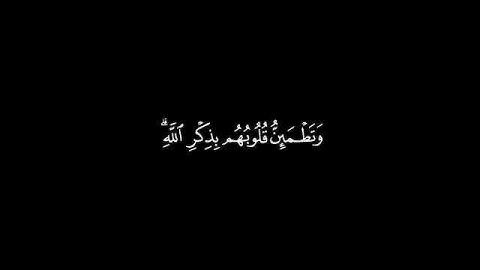 وَتَطۡمَئِنُّ قُلُوبُهُم بِذِكۡرِ ٱللَّهِۗ